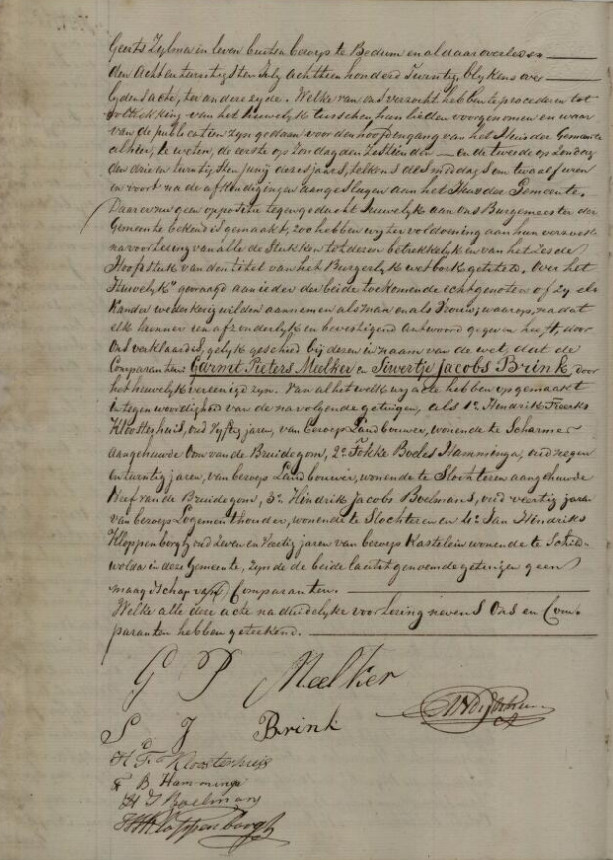 Geerts Zylma in leven buiten beroep te Bedum en aldaar overleden
den Achtentwintigsten July achttienhonderd Twintig, blykens over
lydens acte, ter andere zyde. Welke van ons verzocht hebben te procederen tot
voltrekking van het huwelyk tusschen hun lieden voorgenomen en waar
van de publicatien zyn gedaan voor den hoofdingang van het Huis der Gemeente
alhier, te weten, de eerste op Zondag den Zestienden en de tweede op Zondag
den drie en twintigsten Junij dezes jaars, telkens des middags om twaalf uren
en voort na de afkondigingen aangeslagen aan het Huis der Gemeente.
Daar er nu geen oppositie tegen gedacht Huwelyk aan ons Burgemeester der
Gemeente bekend is gemaakt, zoo hebben wy ter voldoening aan hun verzoek
na voorlezing van alle de Stukken tot dezen betrekkelyk en van het Zesde
Hoofdstuk van den titel van het Burgerlyk wetboek getiteld. Over het
Huwelyk" gevraagd aan ieder der beide toekomende echtgenoten of zy el-
kander wederkerig wilden aannemen als Man en als Vrouw, waarop, nadat
elk hunner een afzonderlyk en bevestigend antwoord gegeven heeft, door
Ons verklaard is, gelyk geschied bij dezen in naam van de wet, dat de
Comparanten Garmt Pieters Meelker en Sievertje Jacobs Brink, door
het huwelyk vereenigd zyn. Van al het welk wy acte hebben opgemaakt
in tegenwoordigheid van de navolgende getuigen, als 1o Hendrik Freerks
Kloosterhuis, oud Vyftig jaren, van beroep Landbouwer, wonende te Scharmer
aangehuwde Oom van de Bruidegom, 2o Fokke Boeles Hamminga, oud negen
en twintig jaren, van beroep Landbouwer, wonende te Slochteren aangehuwde
Neef van de Bruidegom, 3o Hindrik Jacobs Boelmans, oud veertig jaren
van beroep Logementhouder, wonende te Slochteren en 4o Jan Hindriks
Kloppenborg, oud Zeven en Veertig jaren van beroep Kastelein wonende te Schild-
wolda in deze Gemeente, zynde de beide laatst genoemde getuigen geen
maagdschap van Comparanten.
Welke alle deze acte na duidelyke voorlezing nevens Ons en Com-
paranten hebben geteekend.
G P Meelker
S J Brink
H F Kloosterhuis
F B Hamminga
H J Boelmans
Kloppenborgh